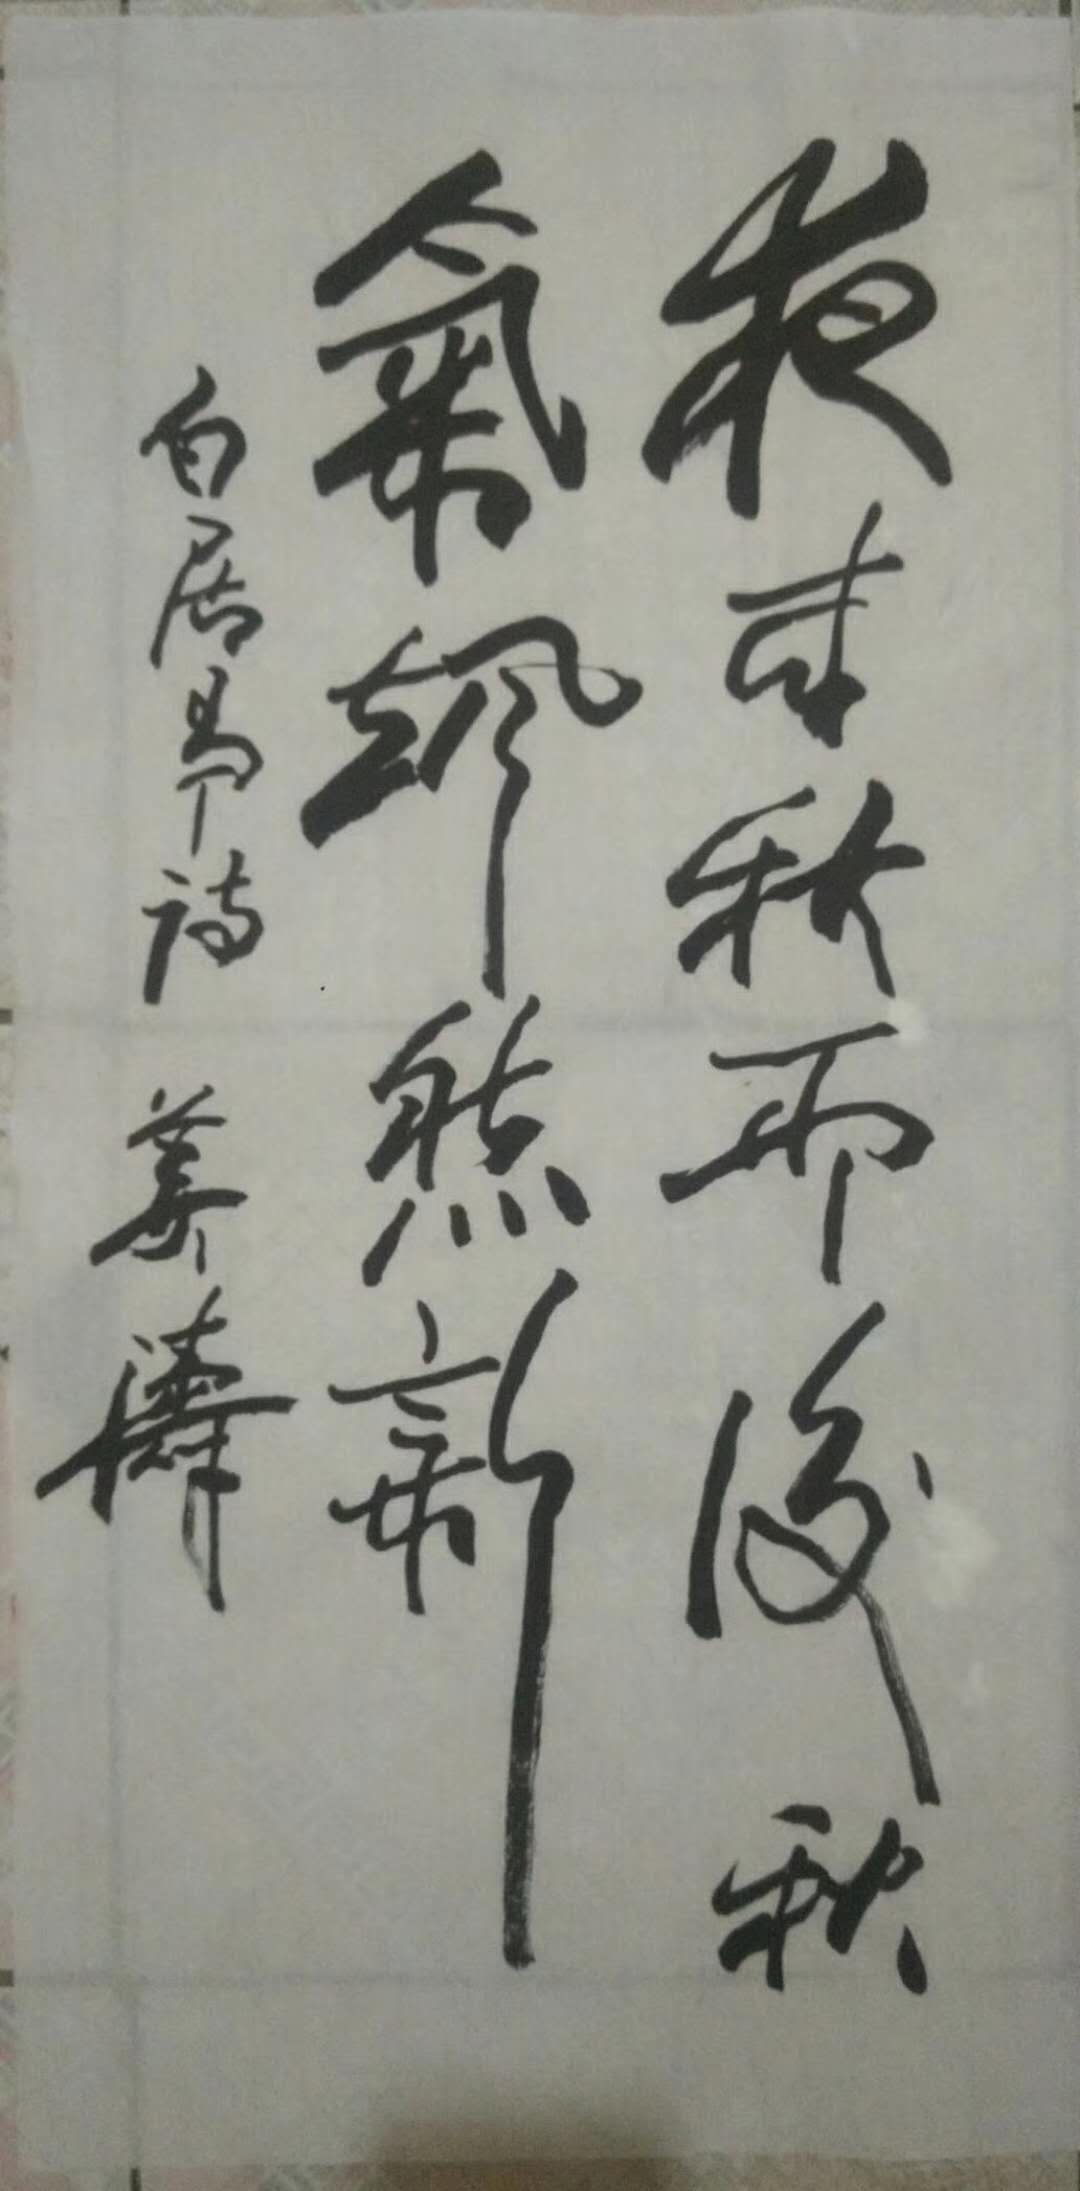 夜来秋雨後秋
氣颯然新
白居易詩 姜濤